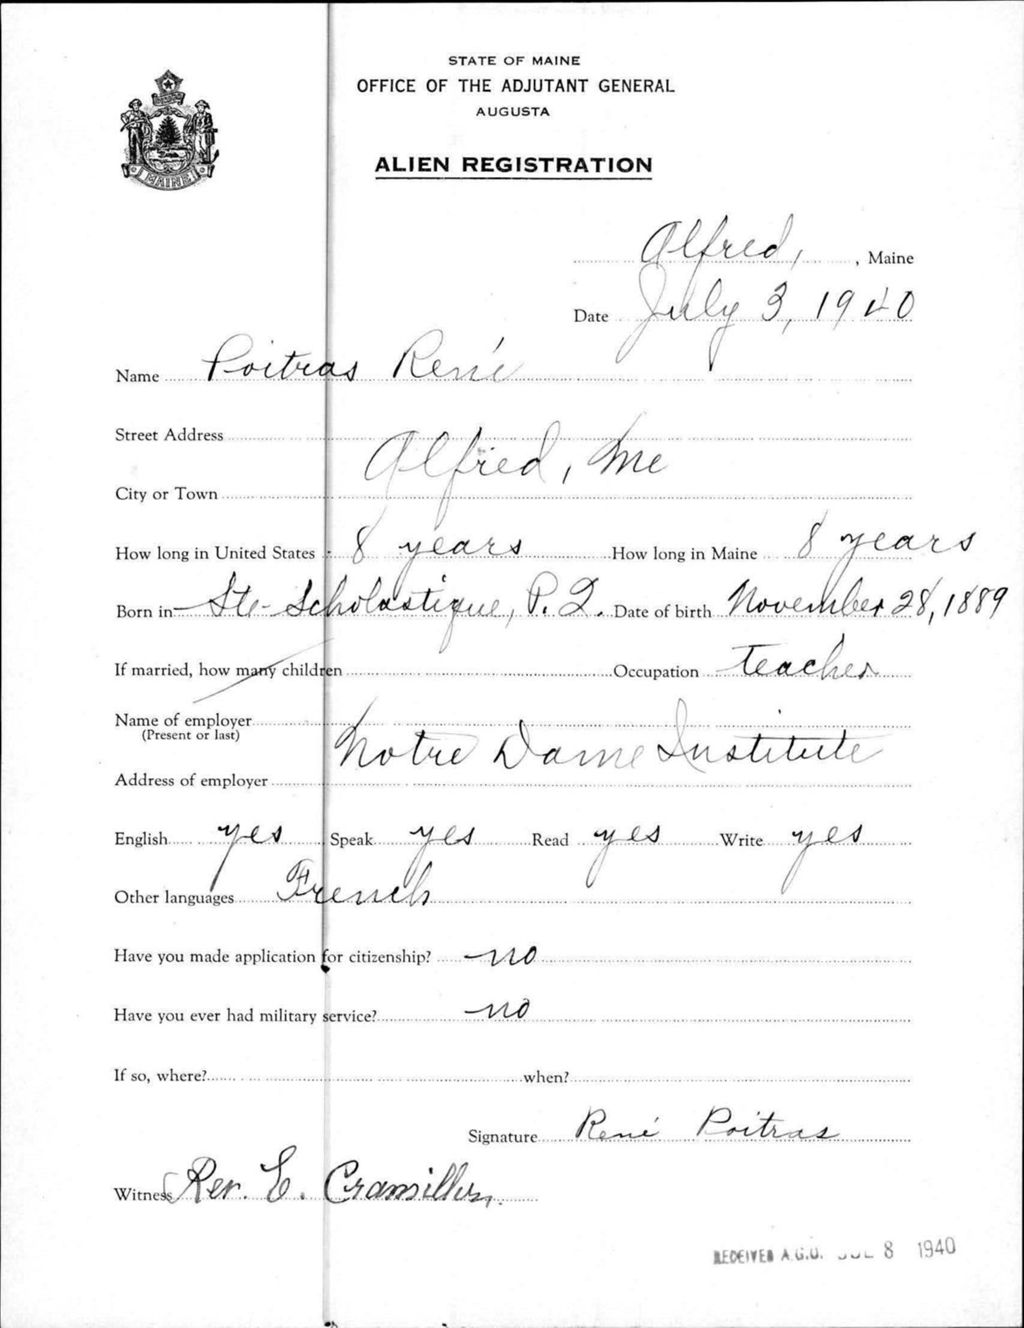 STATE OF MAINE
OFFICE OF THE ADJUTANT GENERAL
AUGUSTA
ALIEN REGISTRATION
MAINE
Alfred, , Maine
Date July 3, 1940
Name Poitras René
Street Address
Alfred, Me
City or Town
How long in United States 8 years How long in Maine 8 years
Born in Ste-Scholastique, P.Q. Date of birth November 28, 1889
If married, how many children Occupation teacher
Name of employer
(Present or last)
Notre Dame Institute
Address of employer
English yes Speak yes Read yes Write yes
Other languages French
Have you made application for citizenship? no
Have you ever had military service? no
If so, where? when?
Signature René Poitras
Witness Rev. E.
RECEIVED A.G.O. JUL 8 1940